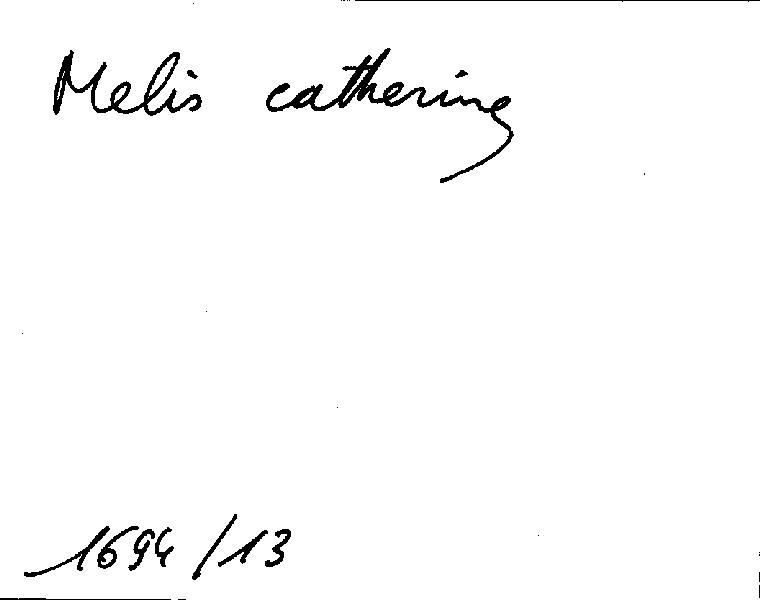 Melis catherine
1694/13